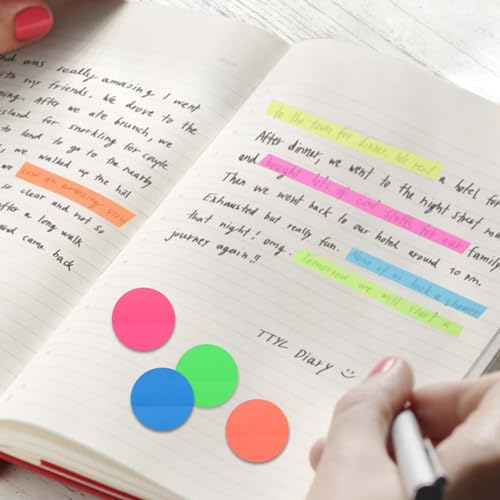 and was really amazing I went
with my friends, We drove to the
ning. After we ate brunch, we
island for snorkling for couple
to land to go to the nearby
we walked up the hill
we saw an amazing view
so clear and not so
after a long walk
and came back
to the town for dinner. We rent a hotel for
After dinner, we went to the night street
and bought lots of cool stuffs for our family
Then we went back to our hotel around 10 PM.
Exhausted but really fun. None of us took a shower
that night! omg. Tomorrow we will start a
journey again!!
TTYL Diary